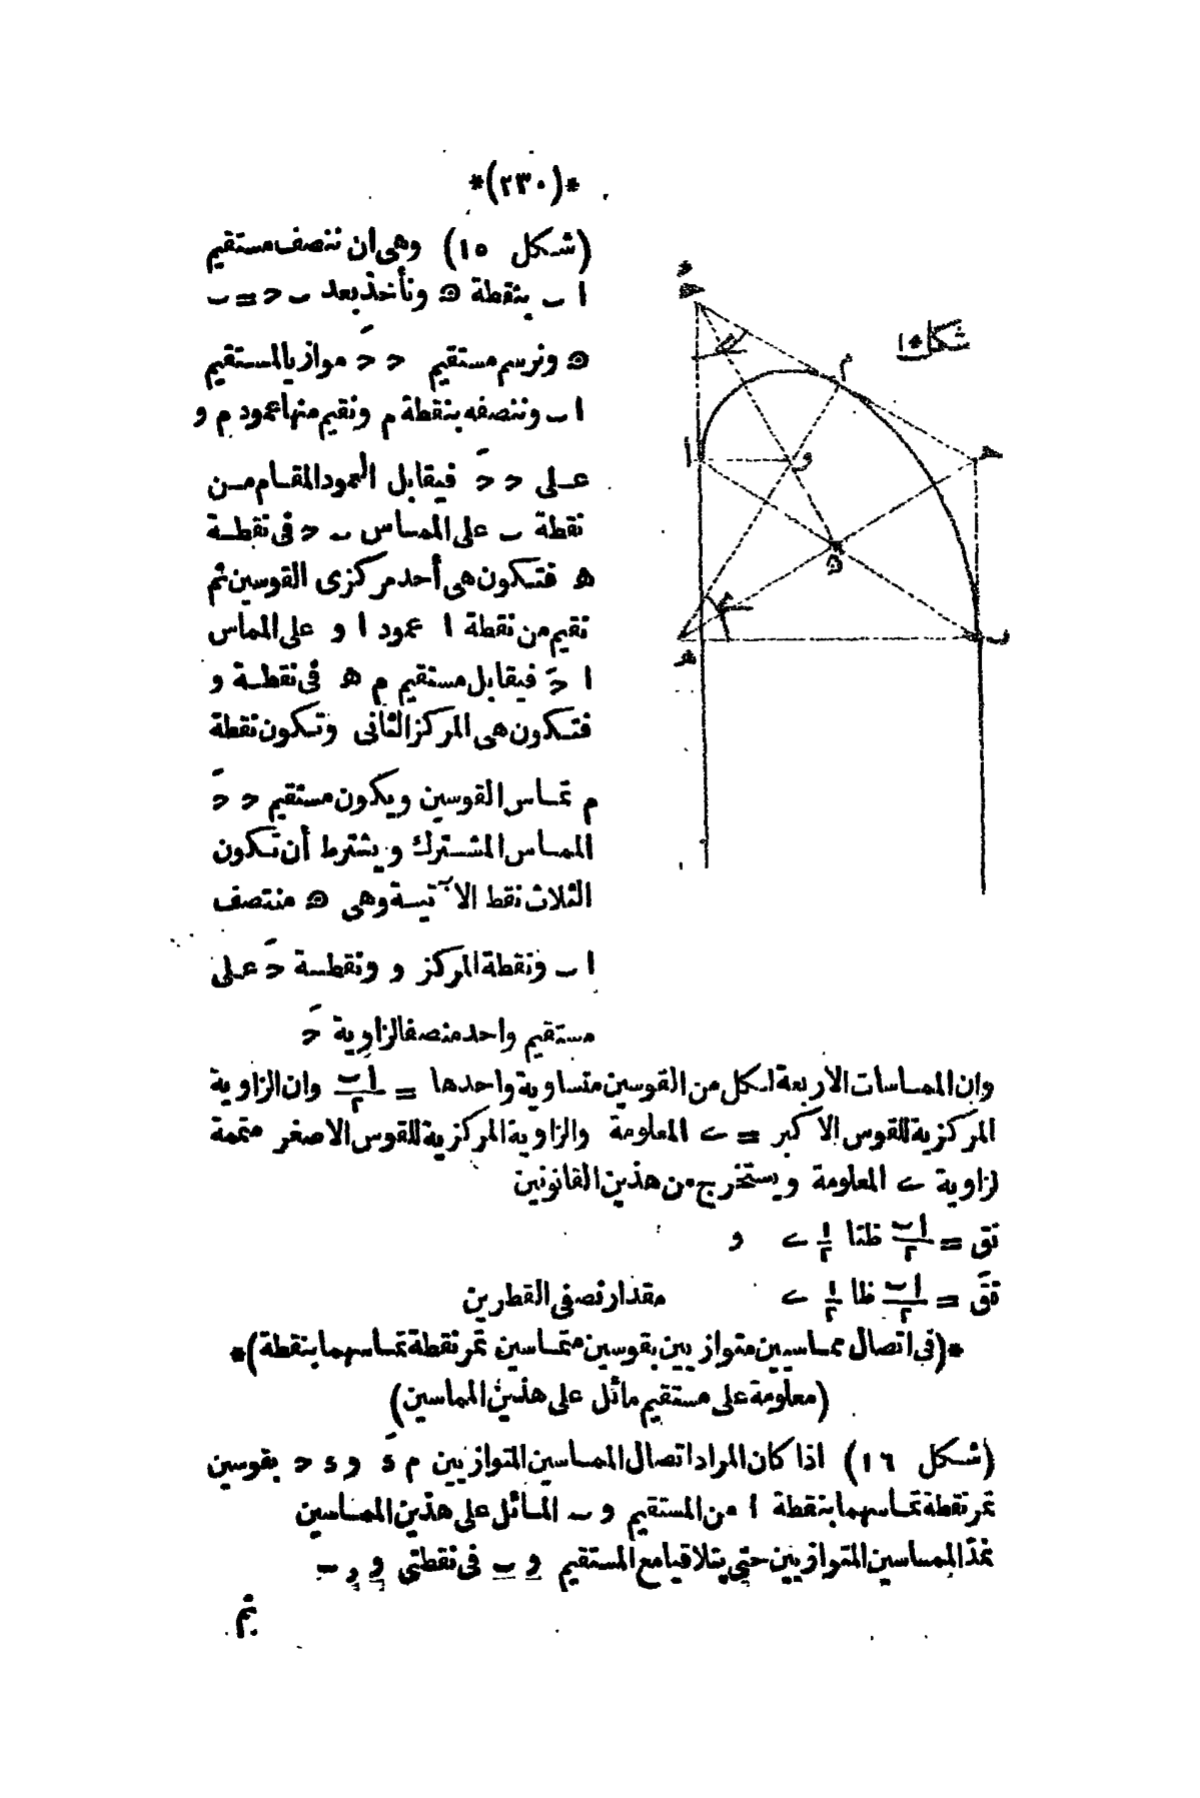 *(٢٣٠)*
(شكل ١٥) وهى ان ننصف مستقيم
ا ب بنقطة ه ونأخذ بعد ب ح = ب
ه ونرسم مستقيم ح حَ موازيا للمستقيم
ا ب وننصفه بنقطة م ونقيم منها عمود م و
على ح حَ فيقابل العمود المقام من
نقطة ب على المماس ب ح فى نقطة
ھ فتكون هى أحد مركزى القوسين ثم
نقيم من نقطة ا عمود ا و على المماس
ا حَ فيقابل مستقيم م ھ فى نقطة و
فتكون هى المركز الثانى وتكون نقطة
م تماس القوسين ويكون مستقيم ح حَ
المماس المشترك ويشترط أن تكون
الثلاث نقط الآتية وهى ه منتصف
ا ب ونقطة المركز و ونقطة حَ على
مستقيم واحد منصفا لزاوية حَ
شكل ١٥
حَ
م
ا
و
ح
ه
ھ
ب
وان المماسات الاربعة لكل من القوسين متساوية واحدها = ا ب/٢ وان الزاوية
المركزية للقوس الاكبر = ى المعلومة والزاوية المركزية للقوس الاصغر متممة
لزاوية ى المعلومة ويستخرج من هذين القانونين
نق = ا ب/٢ ظتا ١/٢ ى و
نقَ = ا ب/٢ ظا ١/٢ ى مقدار نصفى القطرين
*(فى اتصال مماسيين متوازيين بقوسين متماسين تمر نقطة تماسهما بنقطة)*
(معلومة على مستقيم مائل على هذين المماسين)
(شكل ١٦) اذا كان المراد اتصال المماسين المتوازيين م ءَ و ء ح بقوسين
تمر نقطة تماسهما بنقطة ا من المستقيم و ب المائل على هذين المماسين
نمد المماسين المتوازيين حتى يتلاقيا مع المستقيم و ب فى نقطتى و و ب
ثم